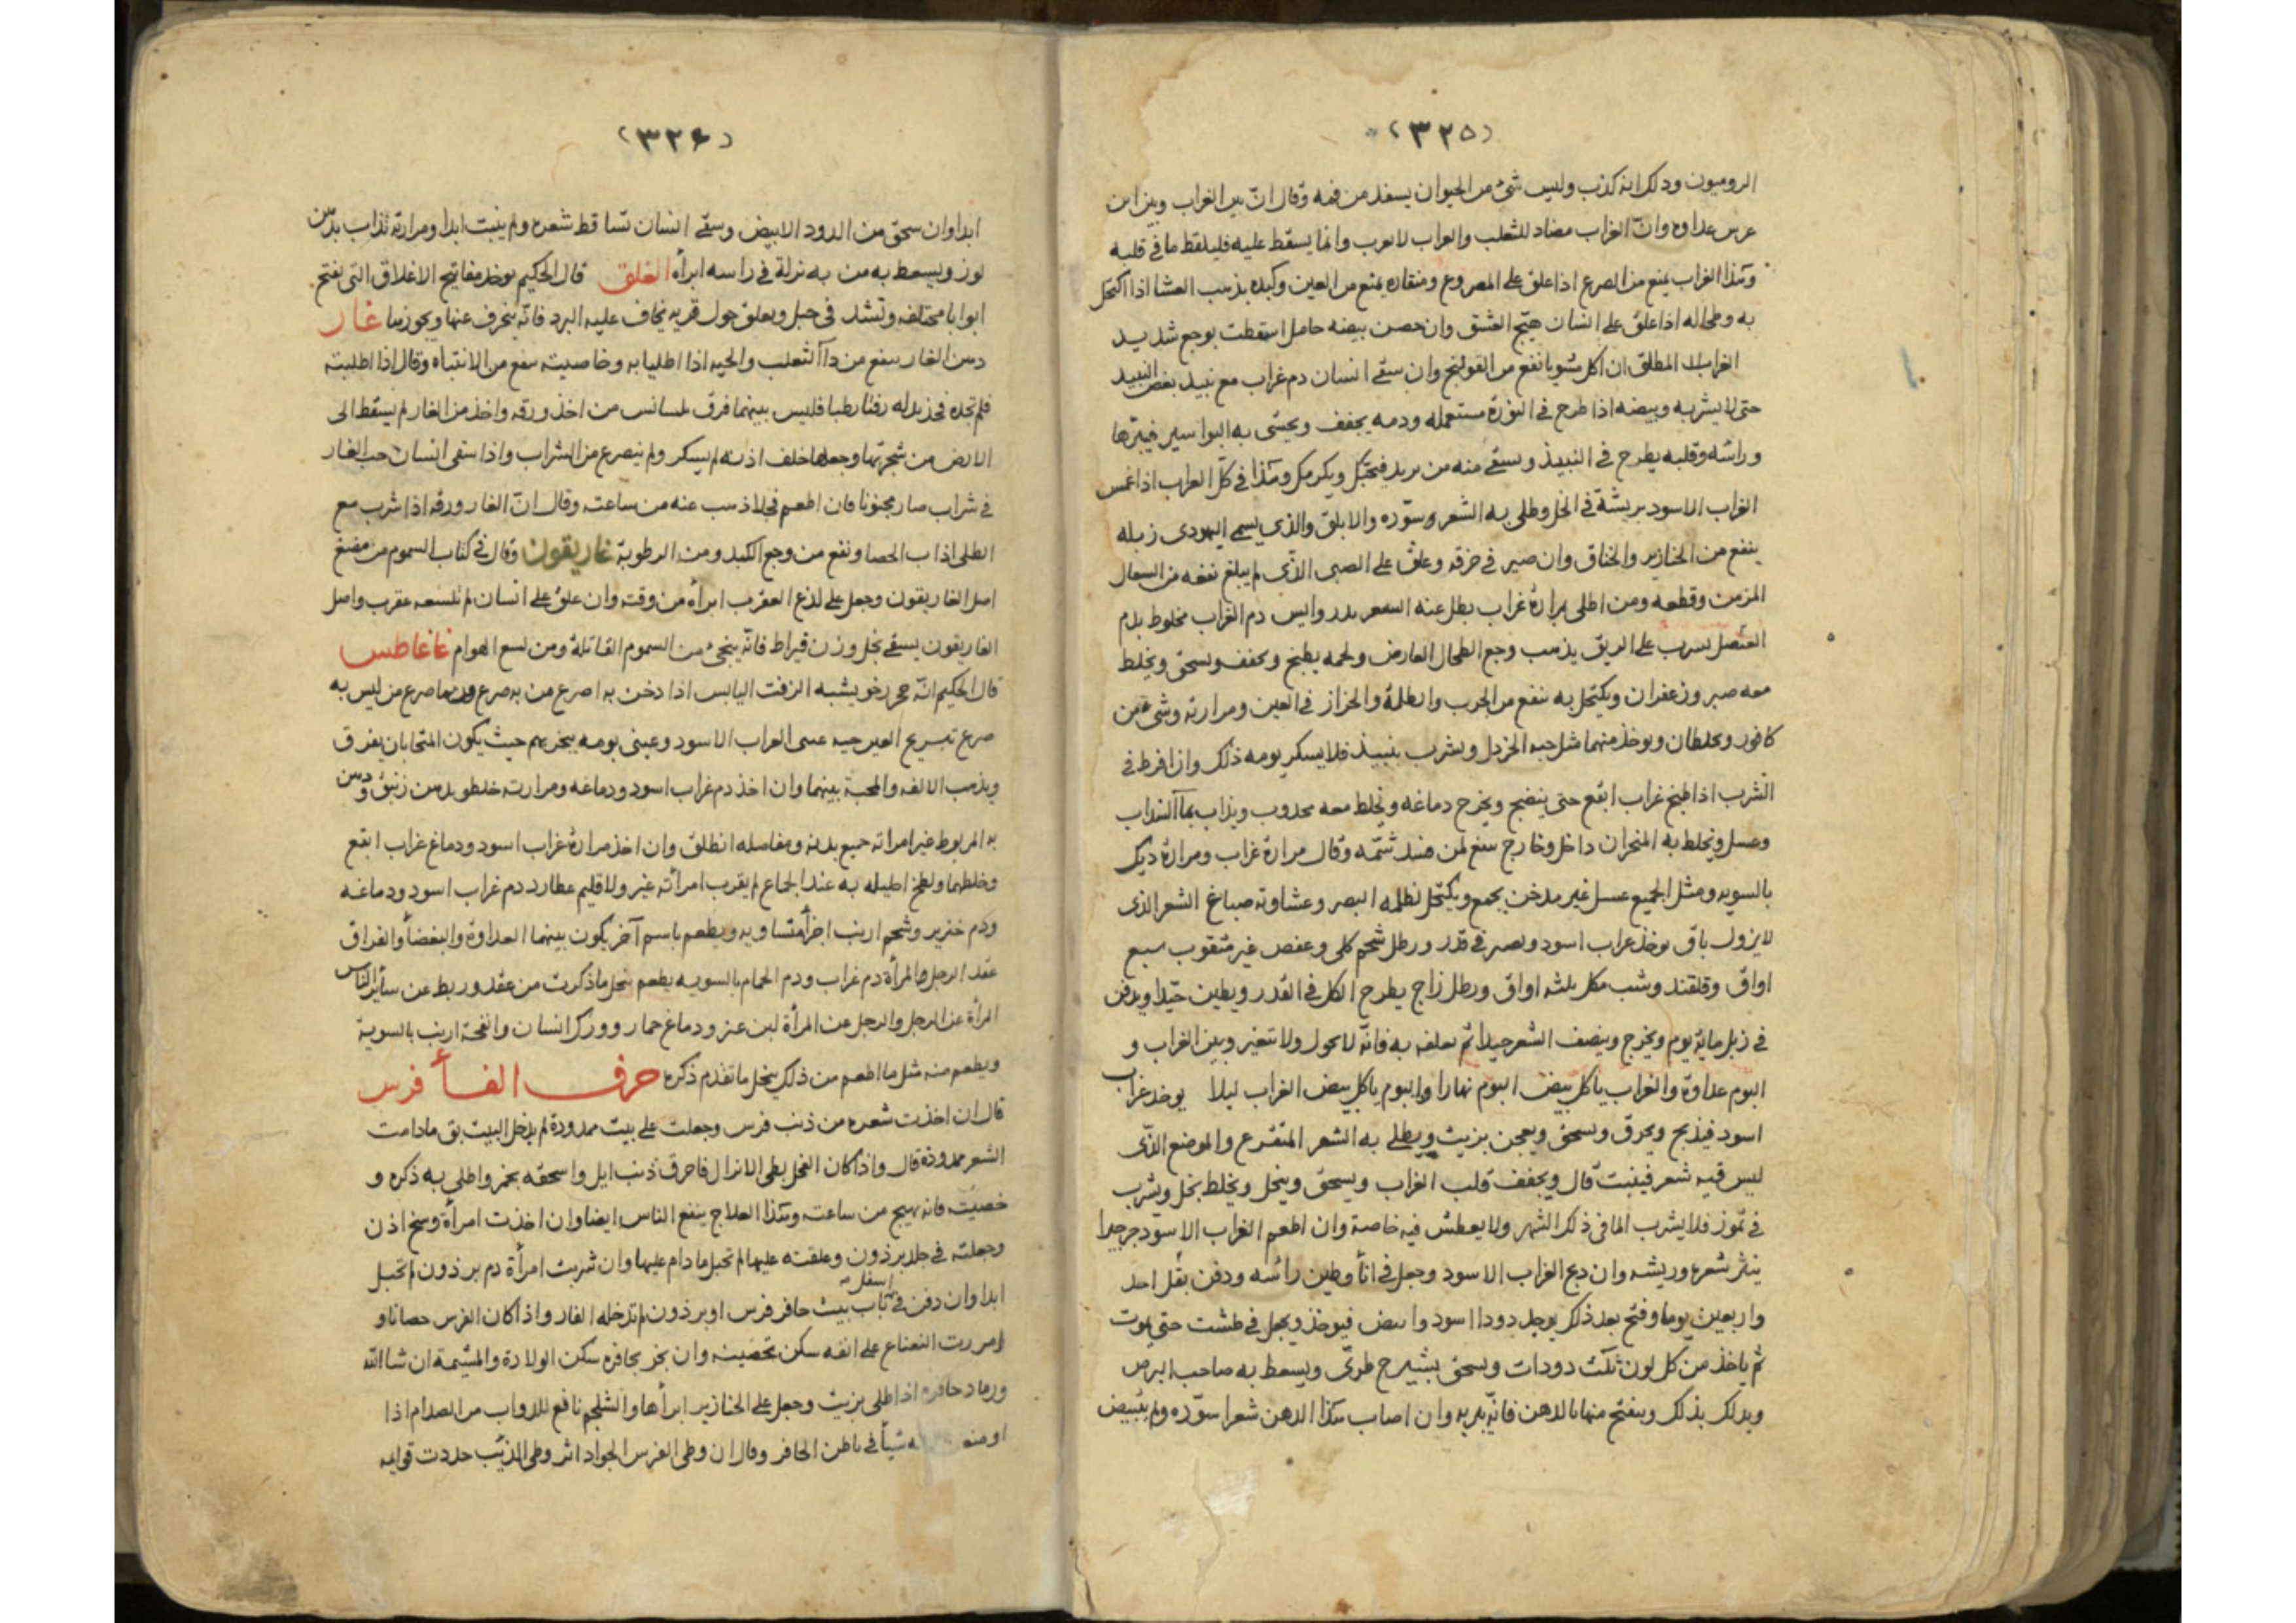 (٣٢٥)
الروميون وذلك انه كذب وليس شئ من الحيوان يسفد من فمه وقال انّ بين الغراب وبين ابن
عرس عداوه وانّ الغراب مضاد للثعلب والغراب وانما يسقط عليه فيلقط ما فى قلبه
وهذا الغراب يمنع من الصرع اذا علق على المصروع ومنقاره يمنع من العين وكبده يذهب العشا اذا اكتحل
به وطحاله اذا علق على انسان هيّج العشق وان حصن بيضه حامل اسقطت بوجع شديد
المطلق ان اكل مشويا نفع من القولنج وان سقى انسان دم غراب مع نبيد بغض النبيد
حتى لا يشربه وبيضه اذا طرح فى النورة مستعمله ودمه يجفف ويحشى به البواسير فيبرها
وراسه وقلبه يطرح فى النبيذ ويسقى منه من يريد وهذا فى كل الغراب اذا غمس
الغراب الاسود بريشة فى الخل وطلى به الشعر سوّده والابلق والذى يسمى اليهودى زبله
ينفع من الخنازير والخناق وان صير فى خرقه وعلق على الصبى الذى لم يبلغ نفعه من السعال
المزمن وقطعه ومن اطلى بمرارة غراب بطل عنه السحر دم الغراب مخلوط بدم
على الريق يذهب وجع الطحال العارض ولحمه يطبخ ويجفف ويسحق ويخلط
معه صبر وزعفران ويكتحل به ينفع من الجرب والظلمة والحزاز فى العين ومرارته وشئ من
كافور ويخلطان ويوخذ منهما مثل حبه الخردل ويشرب بنبيذ فلا يسكر يومه ذلك وان افرط فى
الشرب اذا طبخ غراب ابقع حتى ينضج ويخرج دماغه ويخلط معه ويذاب بمآ السداب
وعسل ويخلط به المنخران داخل وخارج ينفع لمن فسد شمّه وقال مرارة غراب ومرارة ديك
بالسويه ومثل الجميع عسل غير مدخن يجمع ويكتحل لظلمه البصر وغشاوته صباغ الشعر الذى
لا يزول باق يوخذ غراب اسود ويصير فى قدر ورطل شحم كلى وعفص غير مثقوب سبع
اواق وقلقند وشب مكل ثلثه اواق ورطل زاج يطرح الكل فى القدر ويطين جيّدا ويدفن
فى زبل ماية يوم ويخرج وينصف الشعر جيدا ثم يعلفه به فانّه لا يحول ولا يتغير وبين الغراب و
البوم عداوة والغراب ياكل بيض البوم نهارا والبوم ياكل بيض الغراب ليلا يوخذ غراب
اسود فيذبح ويحرق ويسحق ويعجن بزيت ويطلى به الشعر المتقرع والموضع الذى
ليس فيه شعر فينبت قال ويجفف قلب الغراب ويسحق وينخل ويخلط بخل ويشرب
فى تموز فلا يشرب الما فى ذلك الشهر ولا يعطش فيه خاصة وان اطعم الغراب الاسود جرجيرا
ينثر شعره وريشه وان ذبح الغراب الاسود وجعل فى انأ وطين رأسه ودفن بقل احد
واربعين يوما وفتح بعد ذلك يوجد دودا اسود وابيض فيوخذ ويجعل فى طشت حتى يموت
ثم ياخذ من كل لون ثلث دودات ويسحق بشيرج طرىّ ويسعط به صاحب البرص
ويدلك بذلك وينفتح منها بالدهن فانّه يبريه وان اصاب هذا الدهن شعرا سوّده ولم يبيض
(٣٢۶)
ابدا وان سحق من الدود الابيض وسقى انسان تساقط شعره ولم ينبت ابدا ومرارته تذاب بدهن
لوز ويسعط به من به نزلة فى راسه ابرأه الغلق قال الحكيم يوخذ مفاتيح الاغلاق التى يفتح
ابوابا مختلفه وتشد فى حبل ويعلق حول قريه يخاف عليه البرد فانّه ينحرف عنها ويجوزها غار
دهن الغار ينفع من دآ الثعلب والحيه اذا اطليا به وخاصيته ينفع من الانتباه وقال اذا اطلبته
فلم تجده فخذ بدله زفتا رطبا فليس بينهما فرق من اخذ ورقه واخذ من الغار لم يسقط الى
الارض من شجرتها وجعلها خلف اذنه لم يسكر ولم ينصرع من الشراب واذا سقى انسان حب الغار
فى شراب صار مجنونا فان اطعم فجلا ذهب عنه من ساعته وقال انّ الغار ورقه اذا شرب مع
الطلى اذاب الحصا ونفع من وجع الكبد ومن الرطوبة غاريقون وقال فى كتاب السموم من مضغ
اصل الغاريقون وجعل على لذع العقرب ابرأه من وقته وان علق على انسان لم تلسعه عقرب واصل
الغاريقون يسقى بخل وزن قيراط فانّه ينجى من السموم القاتلة ومن لسع الهوام غاغاطس
قال الحكيم انّه حجر رخو يشبه الزفت اليابس اذا دخن به اصرع من به صرع وربما صرع من ليس به
صرع عينى الغراب الاسود وعينى بومه يبخر بهم حيث يكون المتحابان يفرق
ويذهب الالفه والمحبة بينهما وان اخذ دم غراب اسود ودماغه ومرارته خلط بدهن زنبق ودهن
به المربوط غير امراته جميع بدنه ومفاصله انطلق وان اخذ مرارة غراب اسود ودماغ غراب ابقع
وخلطهما ولطخ احليله به عند الجماع لم يقرب امرأته غيره ولا قليم عطارد دم غراب اسود ودماغه
ودم خنزير وشحم ارنب اجزأ متساويه ويطعم باسم آخر يكون بينهما العداوة والبغضأ والفراق
عقد الرجل والمرأة دم غراب ودم الحمام بالسويه يطعم بنحل ما ذكرت من عقد وربط عن سأير الناس
المرأة عن الرجل والرجل عن المرأة لبن عنز ودماغ حمار وورك انسان وانفحة ارنب بالسوية
ويطعم منه مثل ما اطعم من ذلك بنحل ما تقدم ذكره حرف الفأ فرس
قال ان اخذت شعره من ذنب فرس وجعلت على بيت ممدودة لم يدخل البيت بق مادامت
الشعر ممدودة قال واذا كان الفحل بطى الانزال فاحرق ذنب ايل واسحقه بخمر واطلى به ذكره و
خصيته فانه يهيج من ساعته وهكذا العلاج ينفع الناس ايضا وان اخذت امرأة وسخ اذن
وجعلته فى جلد برذون وعلقته عليها لم تحبل ما دام عليها وان شربت امرأة دم برذون لم تحبل
اسفل
ابدا وان دفن فى باب بيت حافر فرس او برذون لم تدخله الفار واذا كان الفرس حصانا و
امررت النعناع على انفه سكن تحصينه وان بخر بحافره سكن الولادة والمشيمة ان شا الله
ورماد حافره اذا طلى بزيت وجعل على الخنازير ابرأها والشلجم نافع للدواب من الصدام اذا
شيأ فى باطن الحافر وقال ان وطى الفرس الجواد اثر وطى الذئب حددت قوايمه